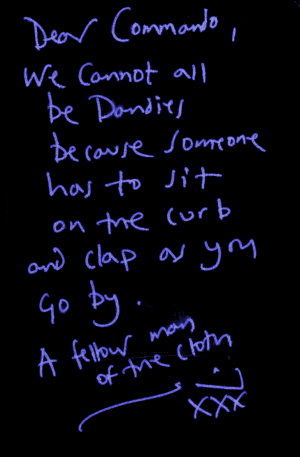 Dear Commando,
We Cannot all
be Dandies
because someone
has to sit
on the curb
and clap as you
go by.
A fellow man
of the cloth
XXX